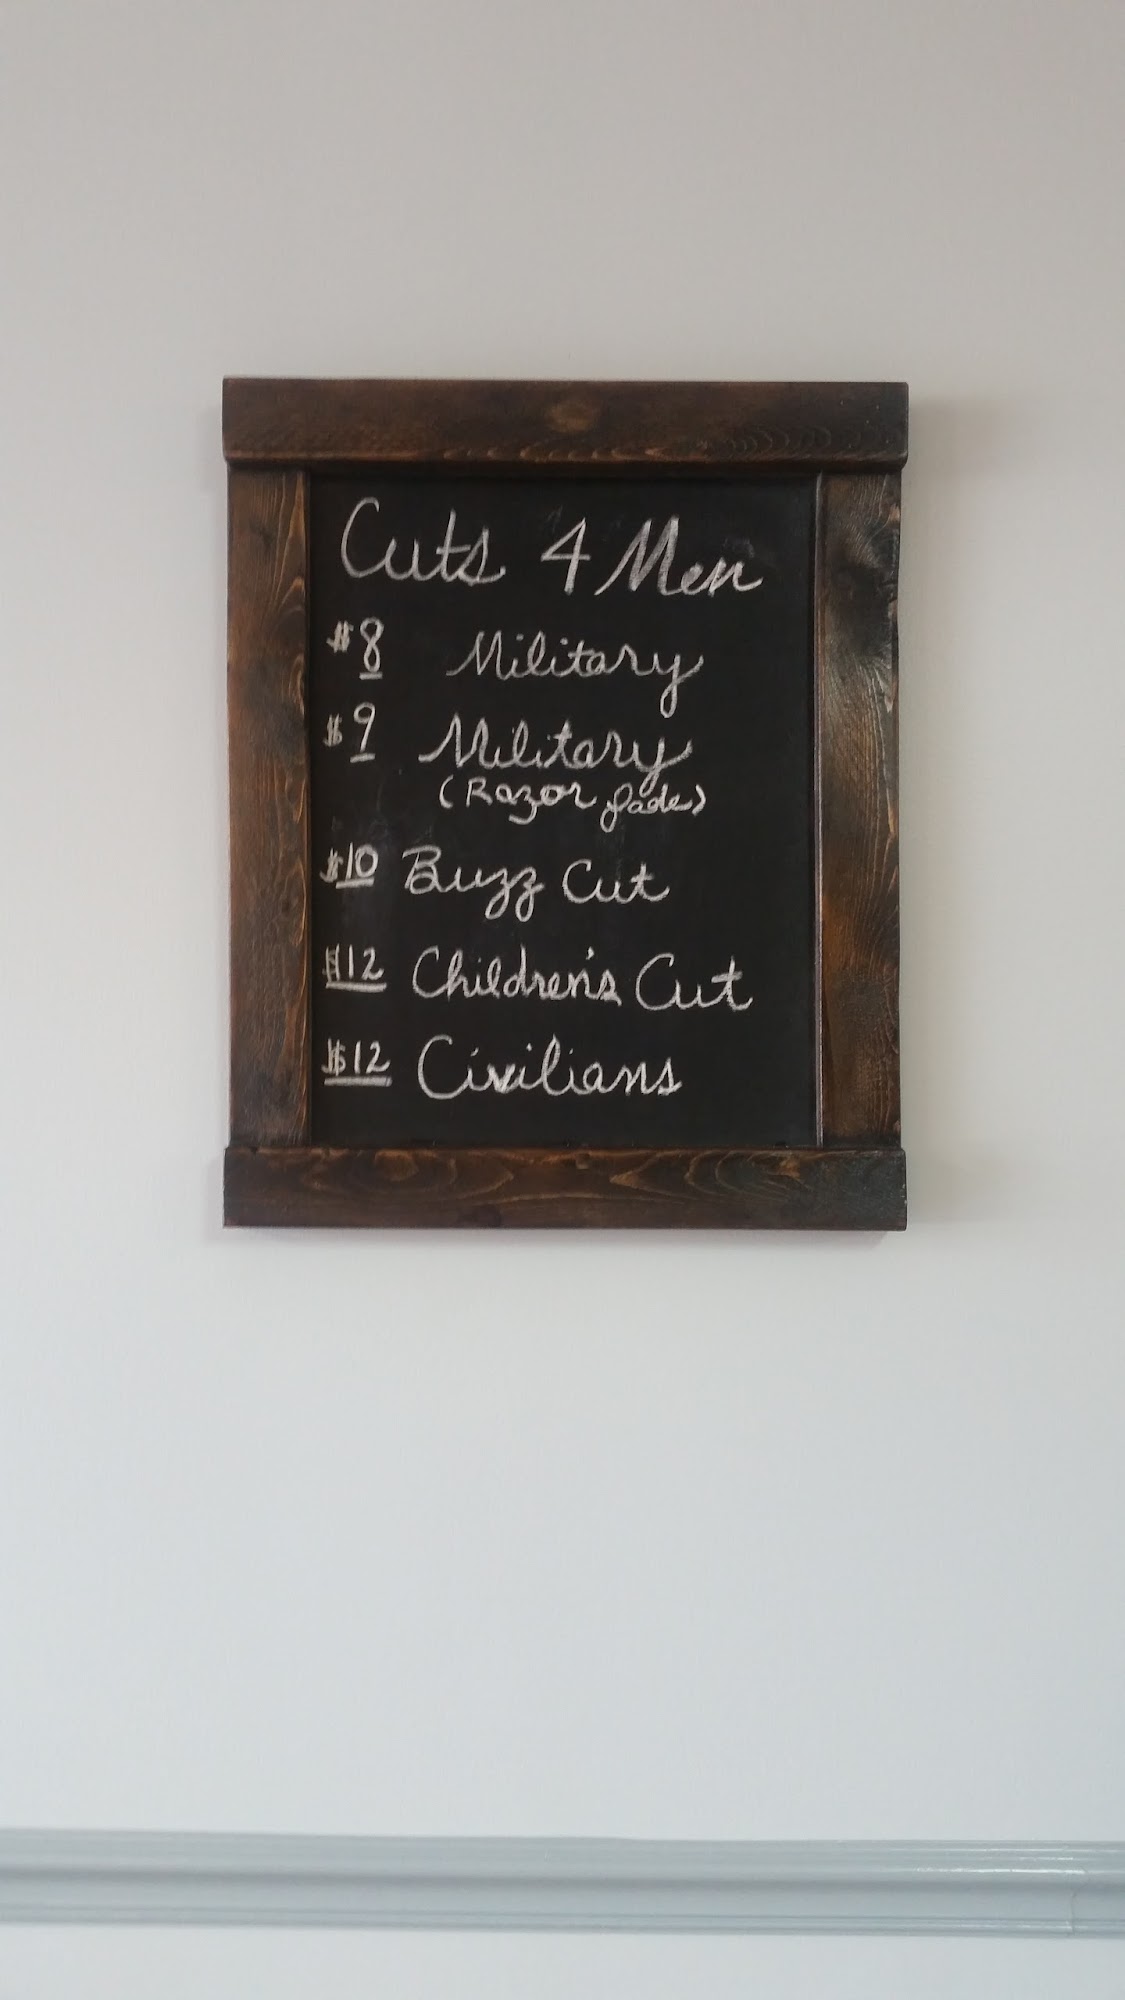 Cuts 4 Men
$8 Military
$9 Military
(Razor fade)
$10 Buzz Cut
$12 Children's Cut
$12 Civilians